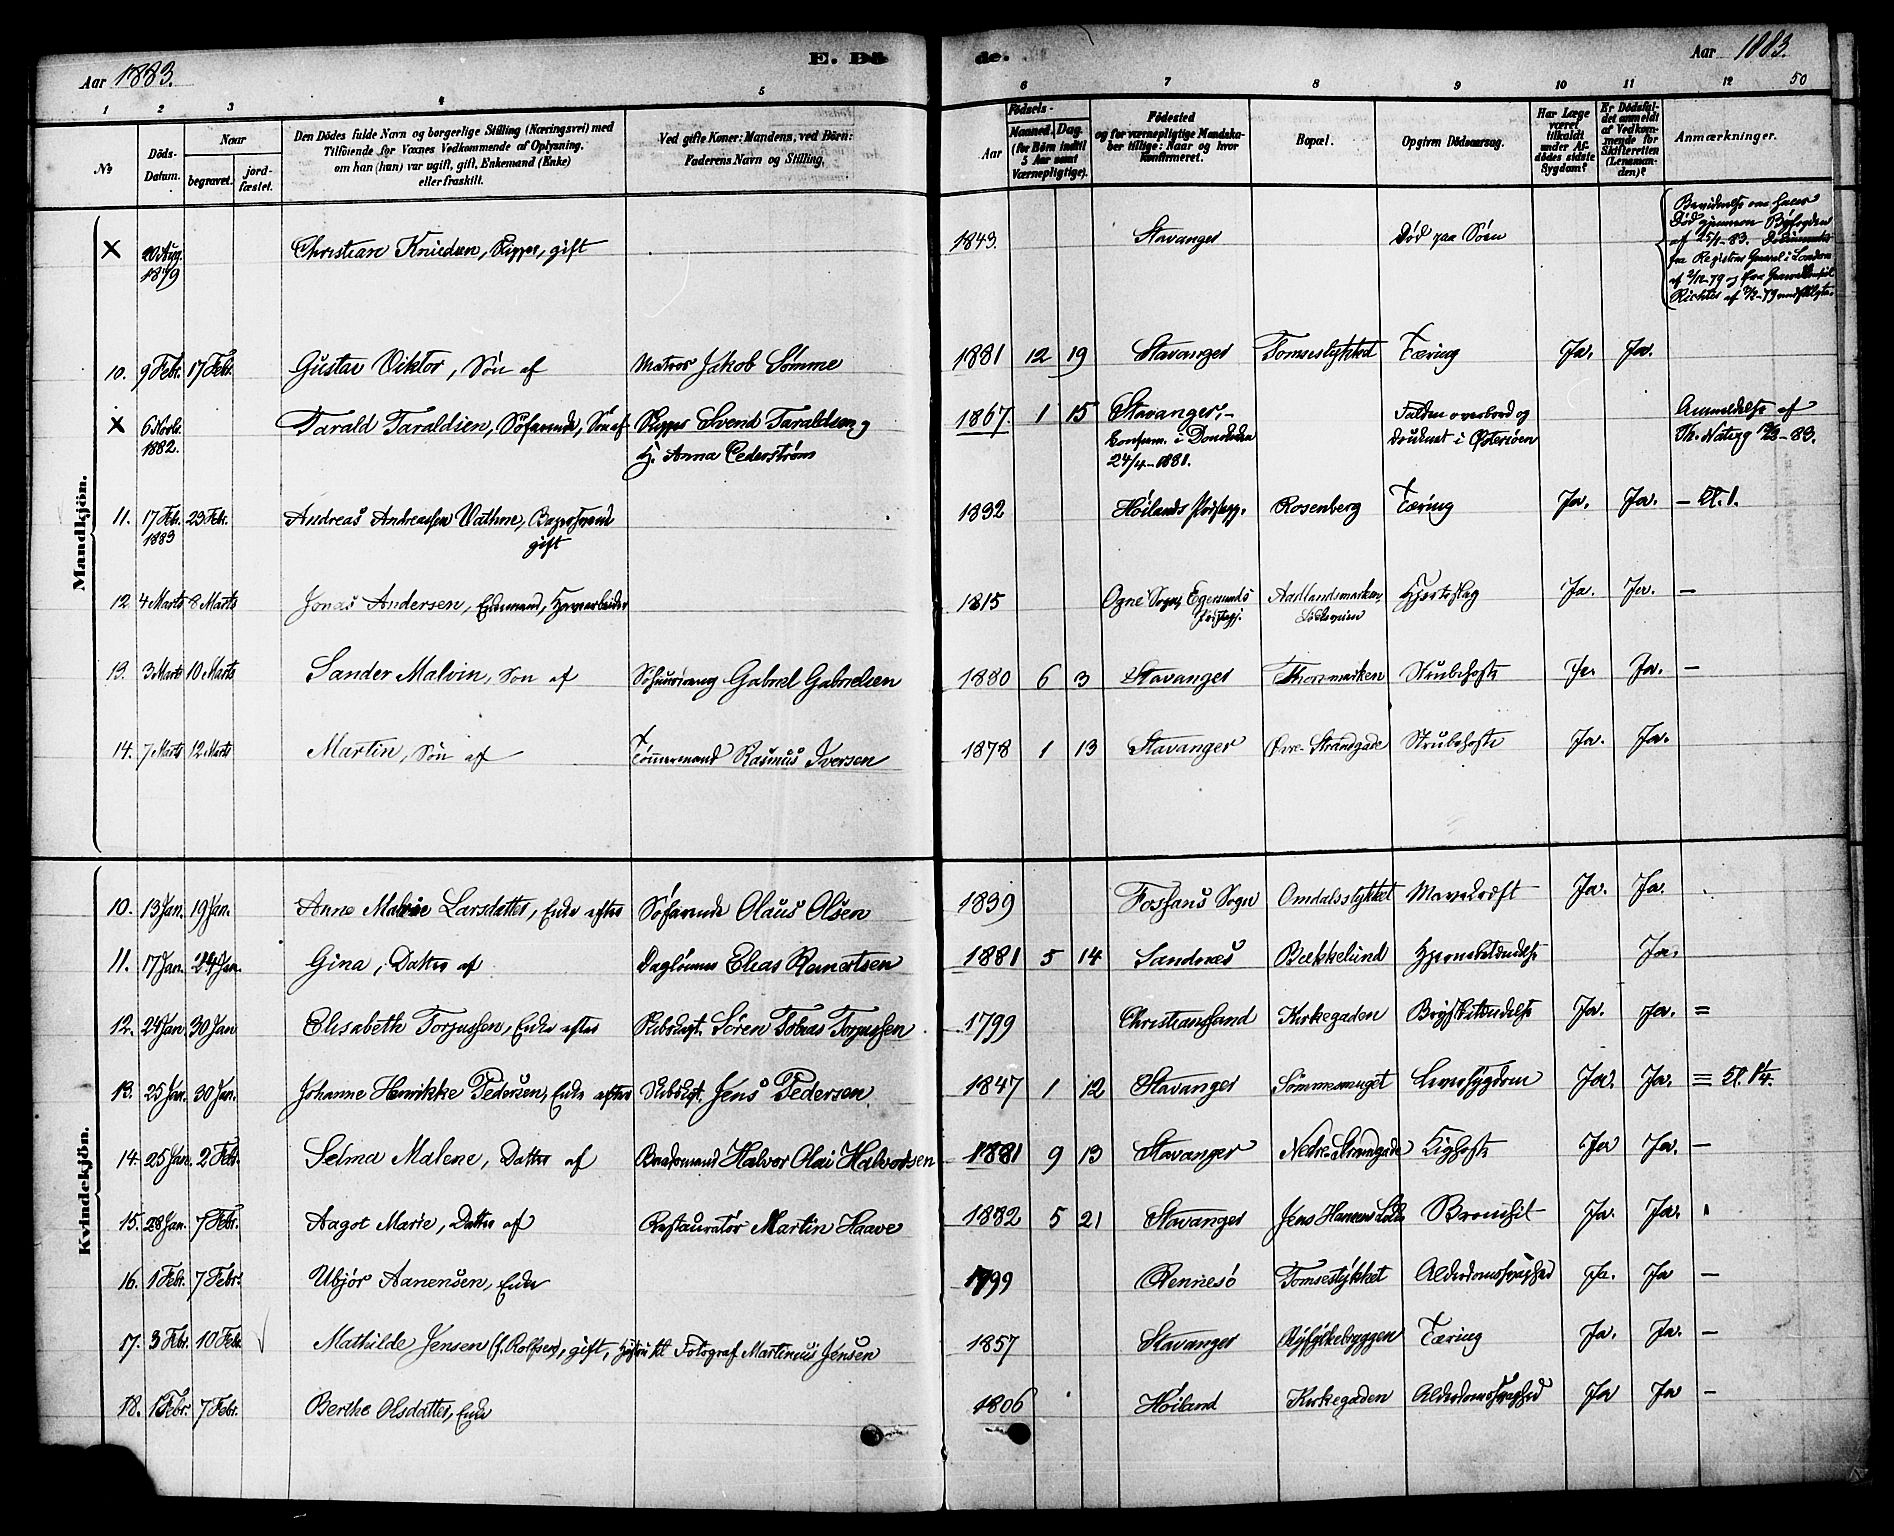 Aar 1883.
E. Dö
de.
Aar 1883.
50
1 2 3 4 5 6 7 8 9 10 11 12
№
Döds-Datum.
Naar
begravet.
jord-fæstet.
Den Dödes fulde Navn og borgerlige Stilling (Næringsvei) med
Tilföiende for Voxnes Vedkommende af Oplysning,
om han (hun) var ugift, gift, Enkemand (Enke)
eller fraskilt.
Ved gifte Koner: Mandens, ved Börn:
Faderens Navn og Stilling.
Födsels-
Aar
Maaned. Dag.
(for Börn indtil
5 Aar samt
Værnepligtige).
Födested
og for værnepligtige Mandska-
ber tillige: Naar og hvor
konfirmeret.
Bopæl.
Opgiven Dödsaarsag.
Har Læge
været
tilkaldt
under Af-
dödes sidste
Sygdom?
Er Dödsfal-
det anmeldt
af Vedkom-
mende for
Skifteretten
(Lensman-
den)?
Anmærkninger.
Mandkjön.
X 20 Aug. 1879 Christian Knudsen, Skipper, gift 1843. Stavanger Död paa Söen
10. 9 Febr. 17 Febr. Gustav Viktor, Sön af Matros Jakob Sömme 1881 12 19 Stavanger Tomsestykket Tæring Ja. Ja.
X 6 1882. Tarald Taraldsen, Söfarende, Sön af Skipper Svend Taraldsen og 1867. 1 15 Stavanger,- Falden overbord og Anmeldelse af
H. Anna Cederström konfirm. i druknet i Østersöen
24/4-1881.
11. 17 Febr. 1883 23 Febr. Andreas Andreassen Vathne, gift 1832 Höilands Præstegj. Rosenberg Tæring Ja. Ja. -
12 4 Marts 8 Marts Jonas Andersen, Enkemand, Havnearbeider 1815 Ogne Sogn, Egersunds Præstegj. Aadlandsmarken, Hjerteslag Ja. Ja. -
13. 3 Marts 10 Marts Sander Malvin, Sön af Gabriel Gabrielsen 1880 6 3 Stavanger Strubehoste Ja. Ja. -
14. 7 Marts 12 Marts Martin, Sön af Tömmermand Rasmus Iversen 1878 1 13 Stavanger Övre Strandgade Strubehoste Ja. Ja.
Kvindekjön.
10. 13 Jan. 19 Jan. Anne Malene Larsdatter, Enke efter Söfarende Olaus Olsen 1839 Fossans Sogn Omdalsstykket Mavekræft Ja. Ja.
11. 17 Jan. 24 Jan. Gina, Datter af Daglönner Elias Reinertsen 1881 5 14 Sandnæs Bækkelund Hjernebetændelse Ja.
12. 24 Jan. 30 Jan Elisabeth Torjussen, Enke efter Skibsbgt. Sören Tobias Torjussen 1799 Christianssand Kirkegaden Brystbetændelse Ja. Ja. =
13. 25 Jan. 30 Jan. Johanne Henrikke Pedersen, Enke efter Skibsbgt. Jens Pedersen 1847 1 12 Stavanger Sömmesmuget Ja. Ja. =
14. 25 Jan. 2 Febr. Selma Malene, Datter af Halvor Olai Halvorsen 1881 9 13 Stavanger Nedre Strandgade Kighoste Ja Ja. -
15. 28 Jan. 7 Febr. Aagot Marie, Datter af Restauratör Martin Haave 1882 5 21 Stavanger Jens Bronchit Ja. Ja.
16. 1 Febr. 7 Febr. Ubjör Aanensen, Enke 1799 Rennesö Tomsestykket Alderdomssvaghed Ja. Ja -
17. 3 Febr. 10 Febr. Mathilde Jensen (f. Rolfsen), gift, Hustru til Fotograf Martinius Jensen 1857 Stavanger Ryfylkebryggen Tæring Ja. Ja. -
18. 1 Febr. 7 Febr. Berthe Olsdatter, Enke 1806 Höiland Kirkegaden Alderdomssvaghed Ja Ja -